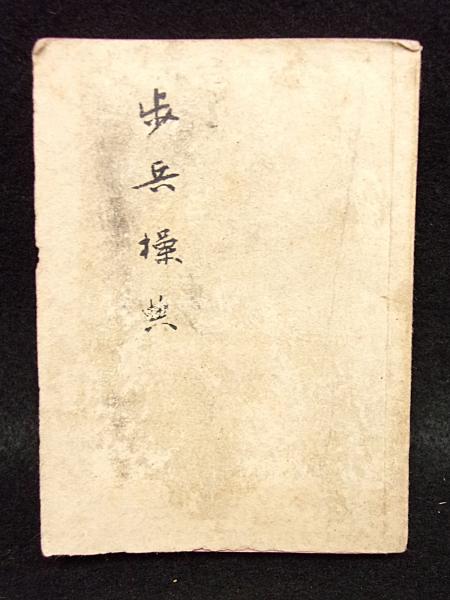 歩兵操典